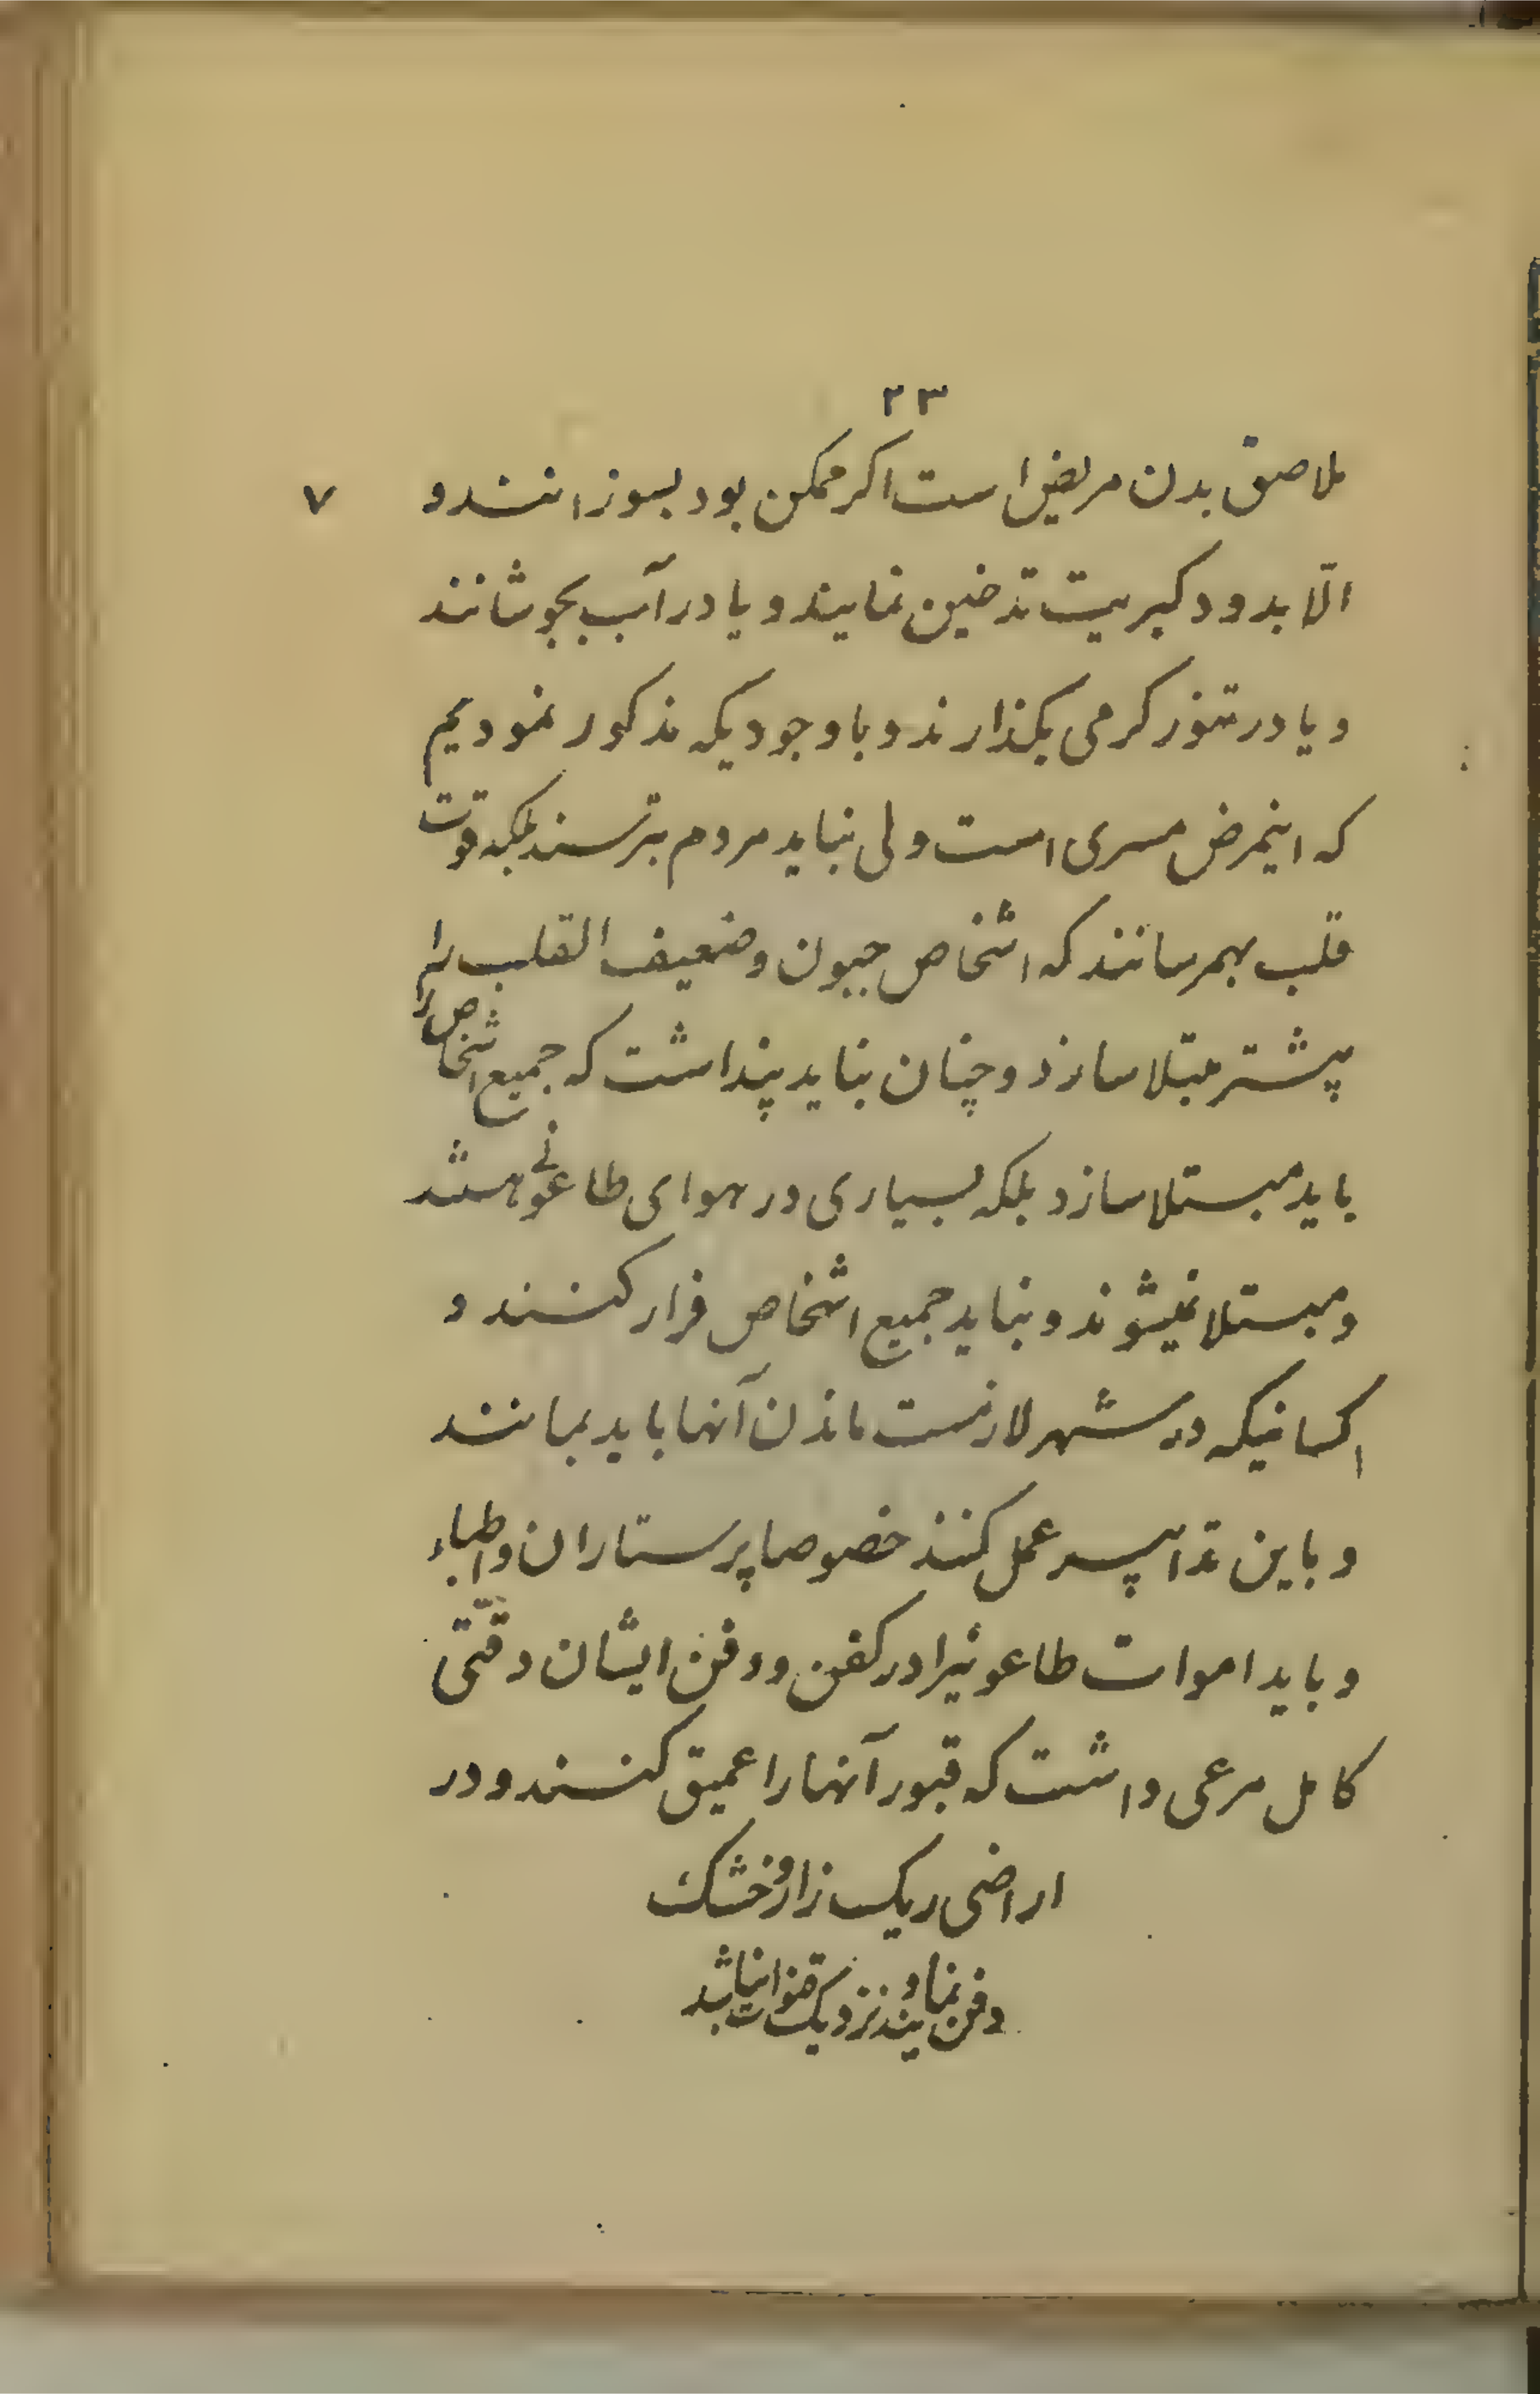 ۲۳
ملاصق بدن مریض است اکر ممکن بود بسوزانند و
۷
الّا بدود کبریت تدخین نمایند و یا در آب بجوشانند
و یا در تنور کرمی بکذارند و با وجودیکه مذکور نمودیم
که اینمرض مسری است ولی نباید مردم بترسند بلکه قوّت
قلب بهمرسانند که اشخاص جبون و ضعیف القلب را
پیشتر مبتلا سازد و چنان نباید پنداشت که جمیع اشخاص را
باید مبتلا سازد بلکه بسیاری در هوای طاعونی هستند
و مبتلا نمیشوند و نباید جمیع اشخاص فرار کنند و
اکسانیکه در شهر لازمست ماندن آنها باید بمانند
و باین تدابیر عمل کنند خصوصا پرستاران و اطباء
و باید اموات طاعونیرا در کفن و دفن ایشان دقّتی
کامل مرعی داشت که قبور آنها را عمیق کنند و در
اراضی ریک زار و خشک
دفن نمایند و نزدیک قنوات نباشد